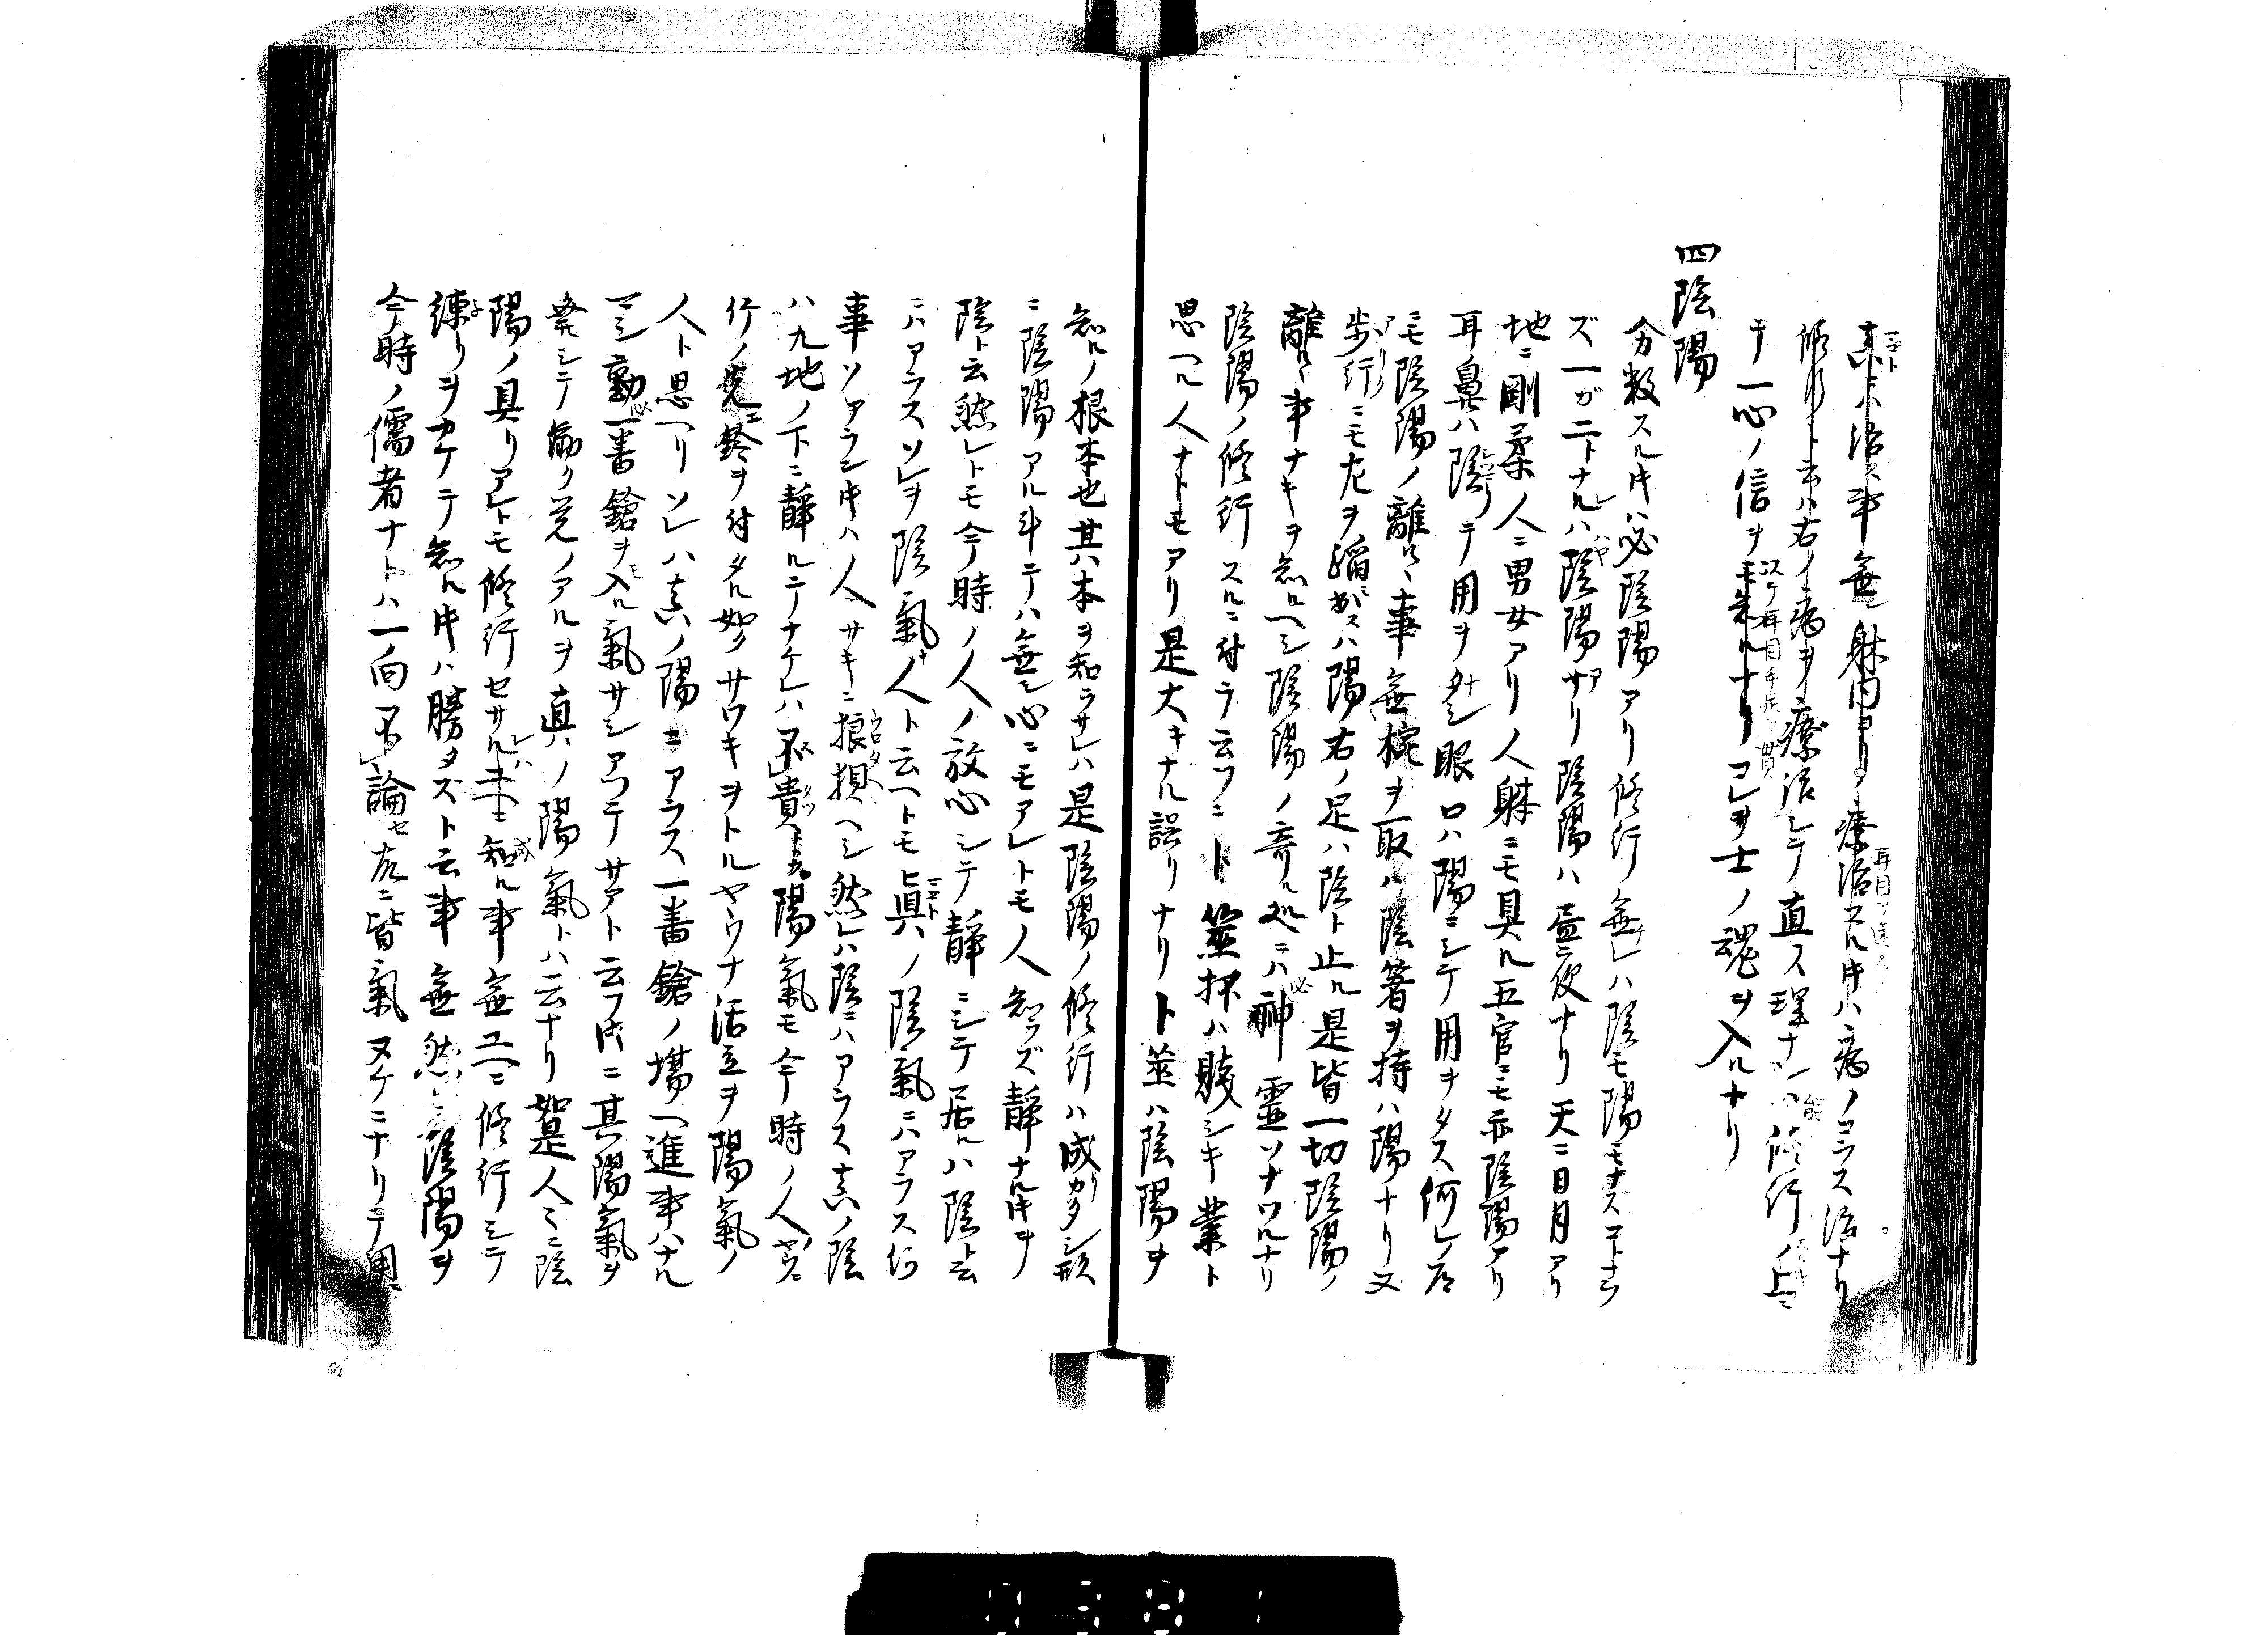 真ニハ治ス事無シ躰内ヨリ療治スル時ハ病ノコラス治ナリ
修行ト云ハ右ノ病ヲ療治シテ直ス理ナレハ能修行ノ上ニ
テ一心ノ信ヲモ来ルナリコレヲ士ノ魂ヲ入ルナリ
四陰陽
分数スル時ハ必陰陽アリ修行無レハ陰モ陽モナスコトナラ
ズ一ガ二トナレハハヤ陰陽アリ陰陽ハ昼夜ナリ天ニ日月アリ
地ニ剛柔人ニ男女アリ人躰ニモ具ル五官ニモ亦陰陽アリ
耳鼻ハ陰ニシテ用ヲナシ眼口ハ陽ニシテ用ヲタス何レノ処
ニモ陰陽ノ離ルヽ事無椀ヲ取ハ陰箸ヲ持ハ陽ナリ又
歩行ニモ左ヲ踏出スハ陽右ノ足ハ陰ト止ル是皆一切陰陽ノ
離ルヽ事ナキヲ知ルヘシ陰陽ノ寄ル処ニハ必神霊ソナワルナリ
陰陽ノ修行スルニ付ラ云フニト筮抔ハ賎シキ業ト
思ヘル人ナトモアリ是大キナル誤リナリト筮ハ陰陽ヲ
知ルノ根本也其本ヲ知ラサレハ是陰陽ノ修行ハ成リカタシ形
ニ陰陽アル斗ニテハ無シ心ニモアレトモ人知ラズ静ナル時ヲ
陰ト云然レトモ今時ノ人ノ放心シテ静ニシテ居ルハ陰ト云
ニハアラスソレヲ陰氣ナ人ト云ヘトモ真ノ陰氣ニハアラス何
事ソアラン時ハ人サキニ狼狽ヘシ然レハ陰ニハアラス真ノ陰
ハ九地ノ下ニ静ルニテナケレハ不貴又陽氣モ今時ノ人ヤウニ
行ノ先ニ鈴ヲ付タル如ノサワキヲトルヤウナ活立ヲ陽氣ノ
人ト思ヘリソレハ真ノ陽ニアラス一番鎗ノ場ヘ進事ハナル
マシ勤一番鎗ヲモ入ル氣サシアツテサアト云フ時ニ其陽氣ヲ
発シテ働ク覚ノアルヲ真ノ陽氣トハ云ナリ如是人々ニ陰
陽ノ具リアレトモ修行セサレハ知ル事無ユヘニ修行シテ
練リヲカケテ知ル時ハ勝タズト云事無然ルニ陰陽ヲ
今時ノ儒者ナトハ一向不論セ故ニ皆氣ヌケニナリテ用ニ